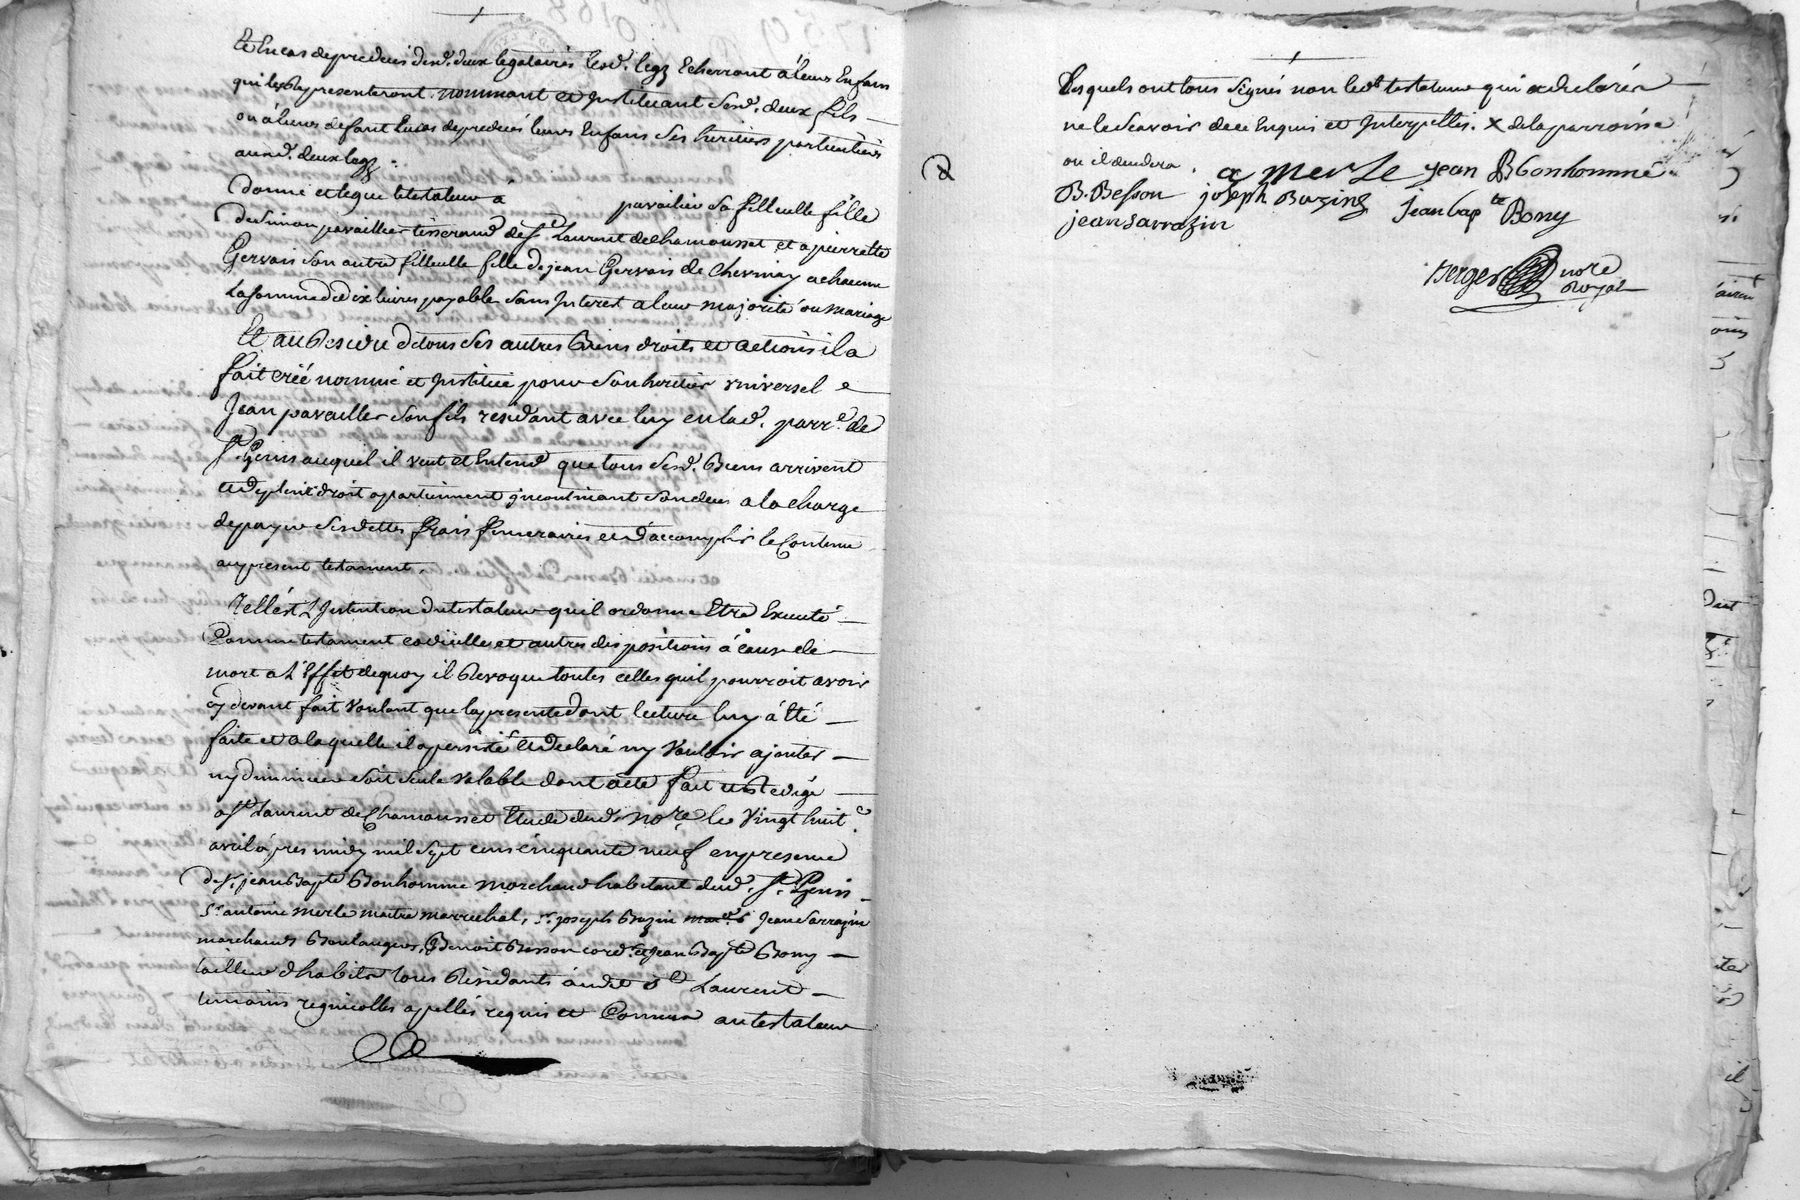 Et en cas de predeces desd. deux legataires lesd. legs Echerront à leurs Enfans
qui les Representeront. nommant et Instituant sesd. deux fils
ou à leurs defaut En cas de predecés leurs Enfans ses heritiers particuliers
auxd. deux legs.
Donne et legue le testateur à pavailier sa filleulle fille
de Simon pavaillier tisserand de St Laurent de Chamousset et a pierrette
Gervais son autre filleulle fille de jean Gervais de Chevrinay a chacune
la somme de dix livres payable sans Interest a leur majorité ou mariage
Et au Residu de tous ses autres Biens droits et actions il a
fait créé nommé et Institué pour son heritier universel
Jean pavailler son fils residant avec luy en lad. parre. de
St Genis auquel il veut et Entend que tous sesd. Biens arrivent
et de plein droit apartiennent incontinant son deces a la charge
de payer ses dettes frais funeraires et d'accomplir le Contenu
au present testament.
Telle est L'Intention du testateur qu'il ordonne Etre Executé
Comme testament codicille et autres dispositions à cause de
mort a L'Effet de quoy il Revoque toutes celles qu'il pourroit avoir
cy devant fait voulant que la presente dont lecture luy a été
faite et a laquelle il a persisté et declaré ny vouloir ajouter
ny diminuer soit seule valable dont acte fait et Redigé
a St Laurent de Chamousset Etude dud. nore le vingt huit
avril après midy mil sept cens cinquante neuf en presence
de sr. jean Bapte Bonhomme marchand habitant dud. St Genis
sr. antoine merle maitre marrechal, sr. joseph Bazin Jean Sarrazin
marchands Boulangers, Benoit Besson cord. et jean Bapte Bony
tailleur d'habits tous Residants audit St Laurent
temoins regnicolles apellés requis et Connus au testateur
Lesquels ont tous signés non led. testateur qui a declaré
ne le scavoir de ce Enquis et Interpellé. x de la parroisse
ou il
a merle jean B bonhomme
B. Besson joseph Bazin Jean bapte Bony
jean sarrazin
Berger nore
Royal